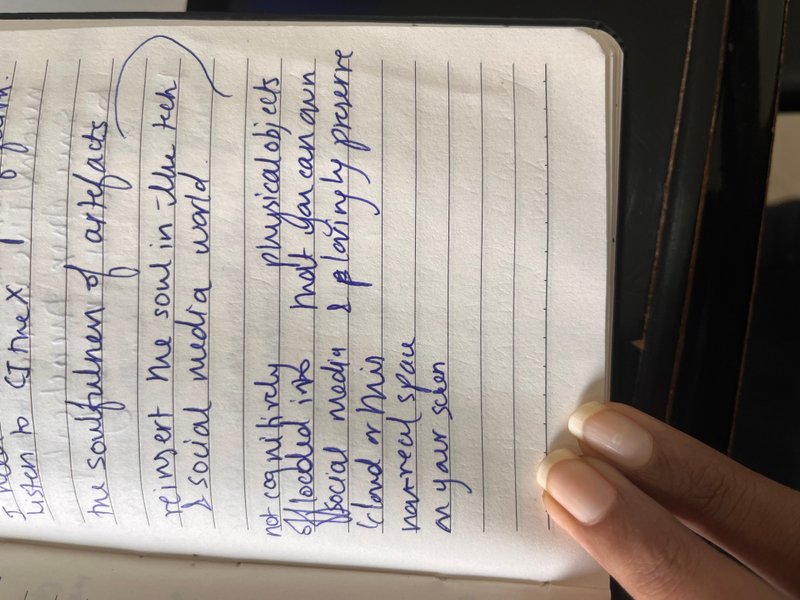 I need
Listen to CI the X
the soulfulness of artefacts
reinsert the soul in the tech
& social media world.
not cognitively
offloaded into
social media
cloud or this
not real space
on your screen
physical objects
that you can own
& lovingly preserve